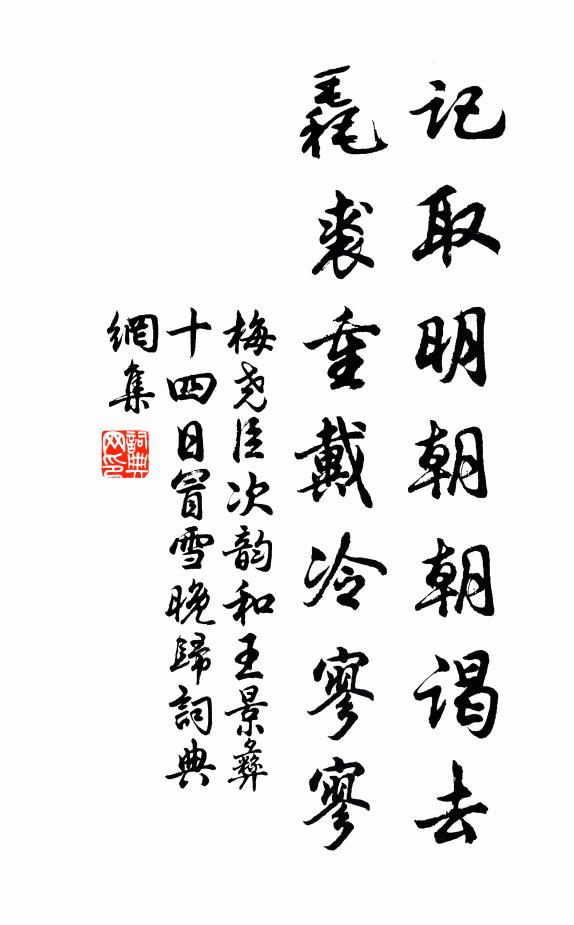 记取明朝朝谒去
毳裘重戴冷寥寥
梅尧臣次韵和王景彝
十四日冒雪晚歸詞典
網集
詞典网印